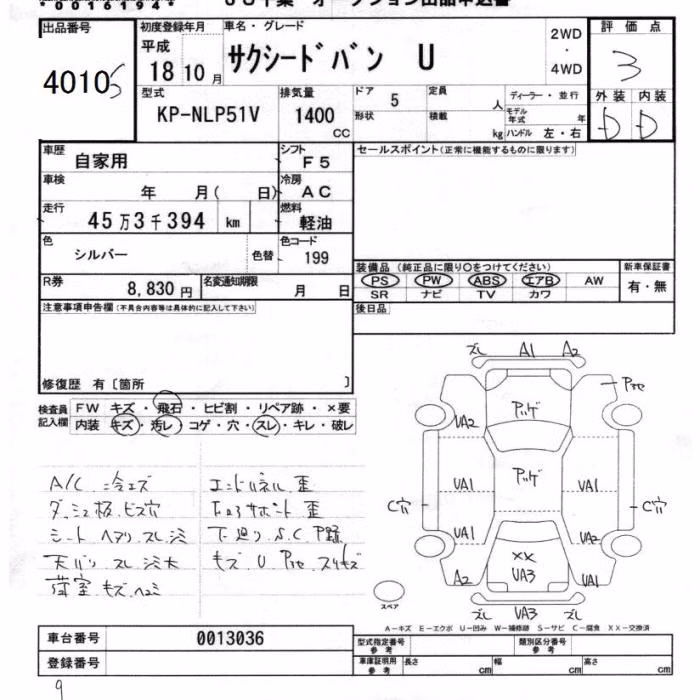 出品番号 初度登録年月 車名・グレード 2WD ・ 4WD 評価点
40105 平成 18 10月 サクシードバン U 3
型式 KP-NLP51V 排気量 1400 CC ドア 5 定員 人 ディーラー・並行 外装 内装
形状 積載 kg モデル年式 年 ハンドル 左・右 D D
車歴 自家用 シフト F5 セールスポイント(正常に機能するものに限ります)
車検 年 月( 日) 冷房 AC
走行 45万3千394 km 燃料 軽油
色 シルバー 色替 色コード 199
装備品 (純正品に限り○をつけてください) 新車保証書
R券 8,830円 名変通知期限 月 日 PS PW ABS エアB AW 有・無
SR ナビ TV カワ
注意事項申告欄(不具合内容等は具体的に記入して下さい) 後日品
修復歴 有〔箇所 〕
検査員 FW キズ・飛石・ヒビ割・リペア跡・×要
記入欄 内装 キズ・汚レ・コゲ・穴・スレ・キレ・破レ
ズレ A1 A2
Pアセ
UA2
Pッゲ
UA1 Pッゲ UA1
C穴 C穴
UA1 UA2
XX
A2 UA3 UA1
ズレ UA3 ズレ
スペア
A/C 冷エズ エンドパネル歪
ダッシュ板ビス穴
シート ヘタリ スレ シミ 下廻り S.C P踊
天バリ スレ シミ大 キズ U Pアセ スリキズ
荷室 キズ ヘコミ
A-キズ E-エクボ U-凹み W-補修跡 S-サビ C-腐食 XX-交換済
車台番号 0013036 型式指定番号 参考 類別区分番号 参考
登録番号 車庫証明用 参考 長さ cm 幅 cm 高さ cm
9